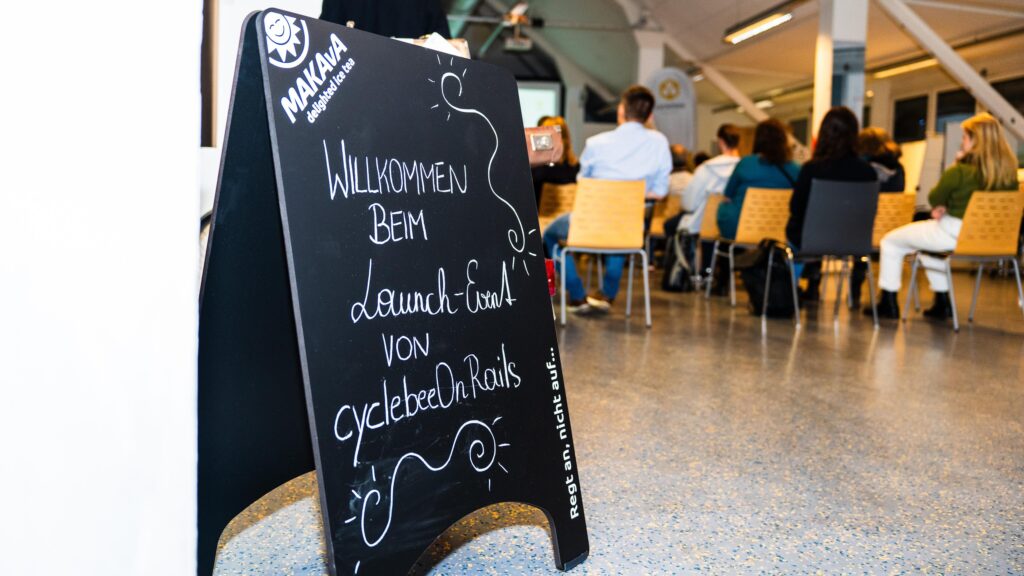 MAKAvA
delighted ice tea
WILLKOMMEN
BEIM
Launch-Event
VON
cyclebeeOnRails
Regt an, nicht auf...